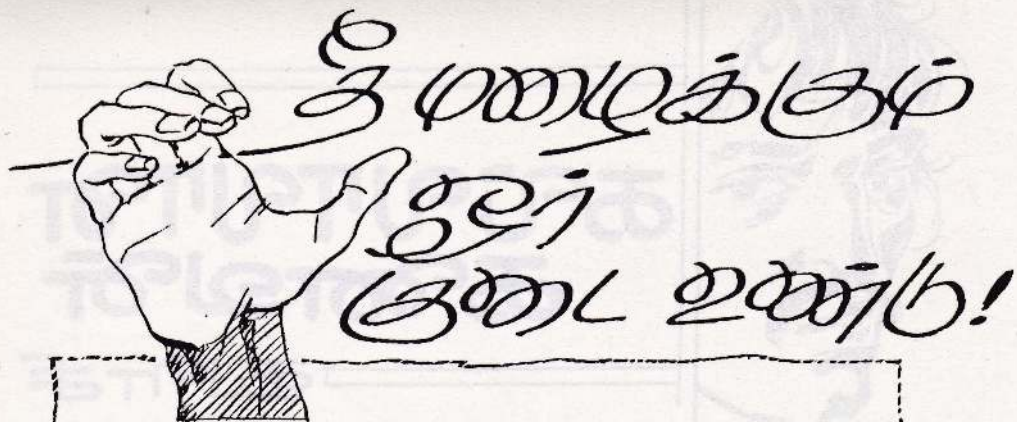 தீ மழைக்கும்
ஓர்
குடை உண்டு!